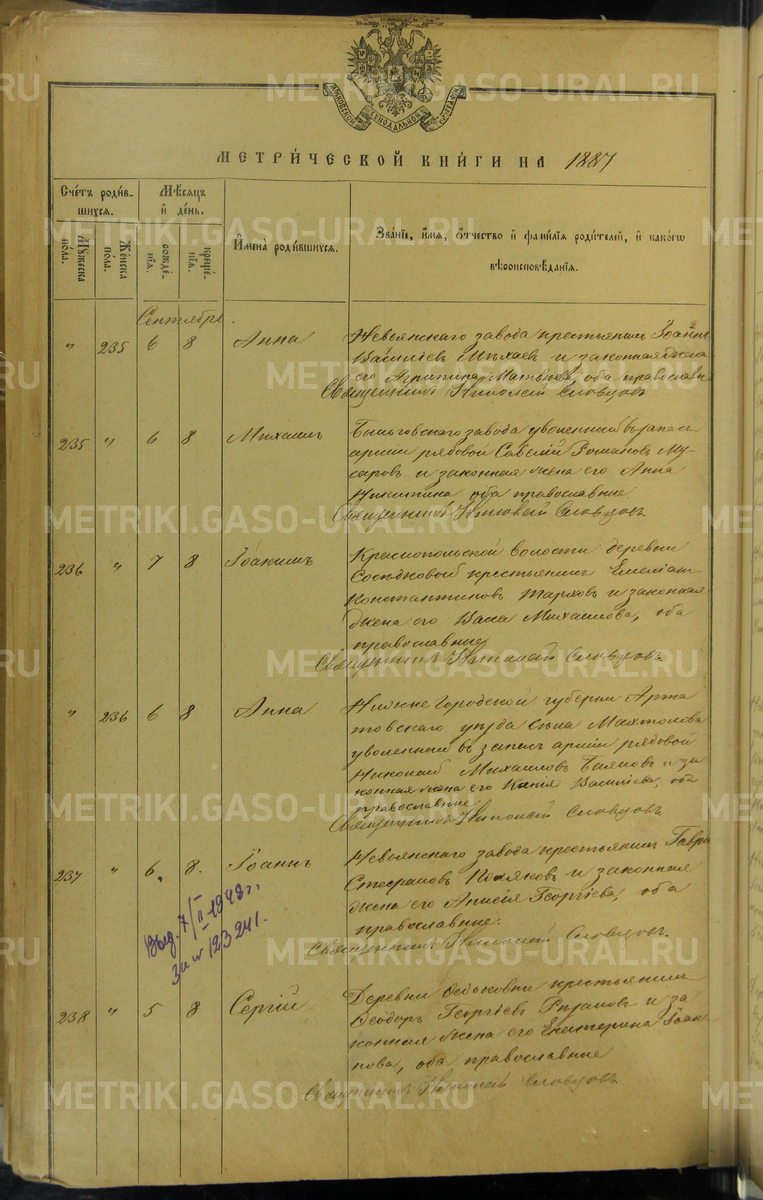 МОСКОВСКОЙ СѴНОДАЛЬНОЙ ТѴПОГРАФІИ
МЕТРИ́ЧЕСКОЙ КНИ́ГИ НА 1887
Счётъ роди́вшихся.
Мѣсяцъ и҆ де́нь.
И҆мена роди́вшихся.
Зва́нїе, и҆́мѧ, ѻ҆́тчество и҆ фами́лїѧ роди́телей, и҆ како́гѡ
вѣроисповѣ́данїѧ.
Му́жеска по́ла.
Же́нска по́ла.
рожде́нїѧ.
креще́нїѧ.
Сентябрь.
" 235 6 8 Анна Невьянскаго завода крестьянинъ Іоаннъ
Василіевъ и законная жена
его Агрипина, оба православн
Священникъ Николай Словцовъ
235 " 6 8 Михаилъ Быньговскаго завода уволенный въ запасъ
арміи рядовой Савелій Романовъ Му-
саровъ и законная жена его Анна
Никитина оба православные
Священникъ Николай Словцовъ
236 " 7 8 Іоакимъ Краснопольской волости деревни
Сосѣдковой крестьянинъ Емеліан
Константиновъ и законная
жена его Васса Михаилова, оба
православные
Священникъ Николай Словцовъ
" 236 6 8 Анна Нижнегородской губерніи Арза
товскаго уѣзда Села
уволенный въ запасъ арміи рядовой
Николай Михаиловъ и за
конная жена его Василіева, оба
православные
Священникъ Николай Словцовъ
237 " 6 8 Іоаннъ Невьянскаго завода крестьянинъ Гаврі
Стефановъ Поляковъ и законная
жена его Анисія Георгіева, оба
православные.
Священникъ Николай Словцовъ.
Выд. 7/II-1948г.
За № 123241.
238 " 5 8 Сергій Деревни крестьянинъ
Ѳеодоръ Георгіевъ и за
конная жена его Екатерина Іоан-
нова, оба православные
Священникъ Николай Словцовъ
METRIKI.GASO-URAL.RU